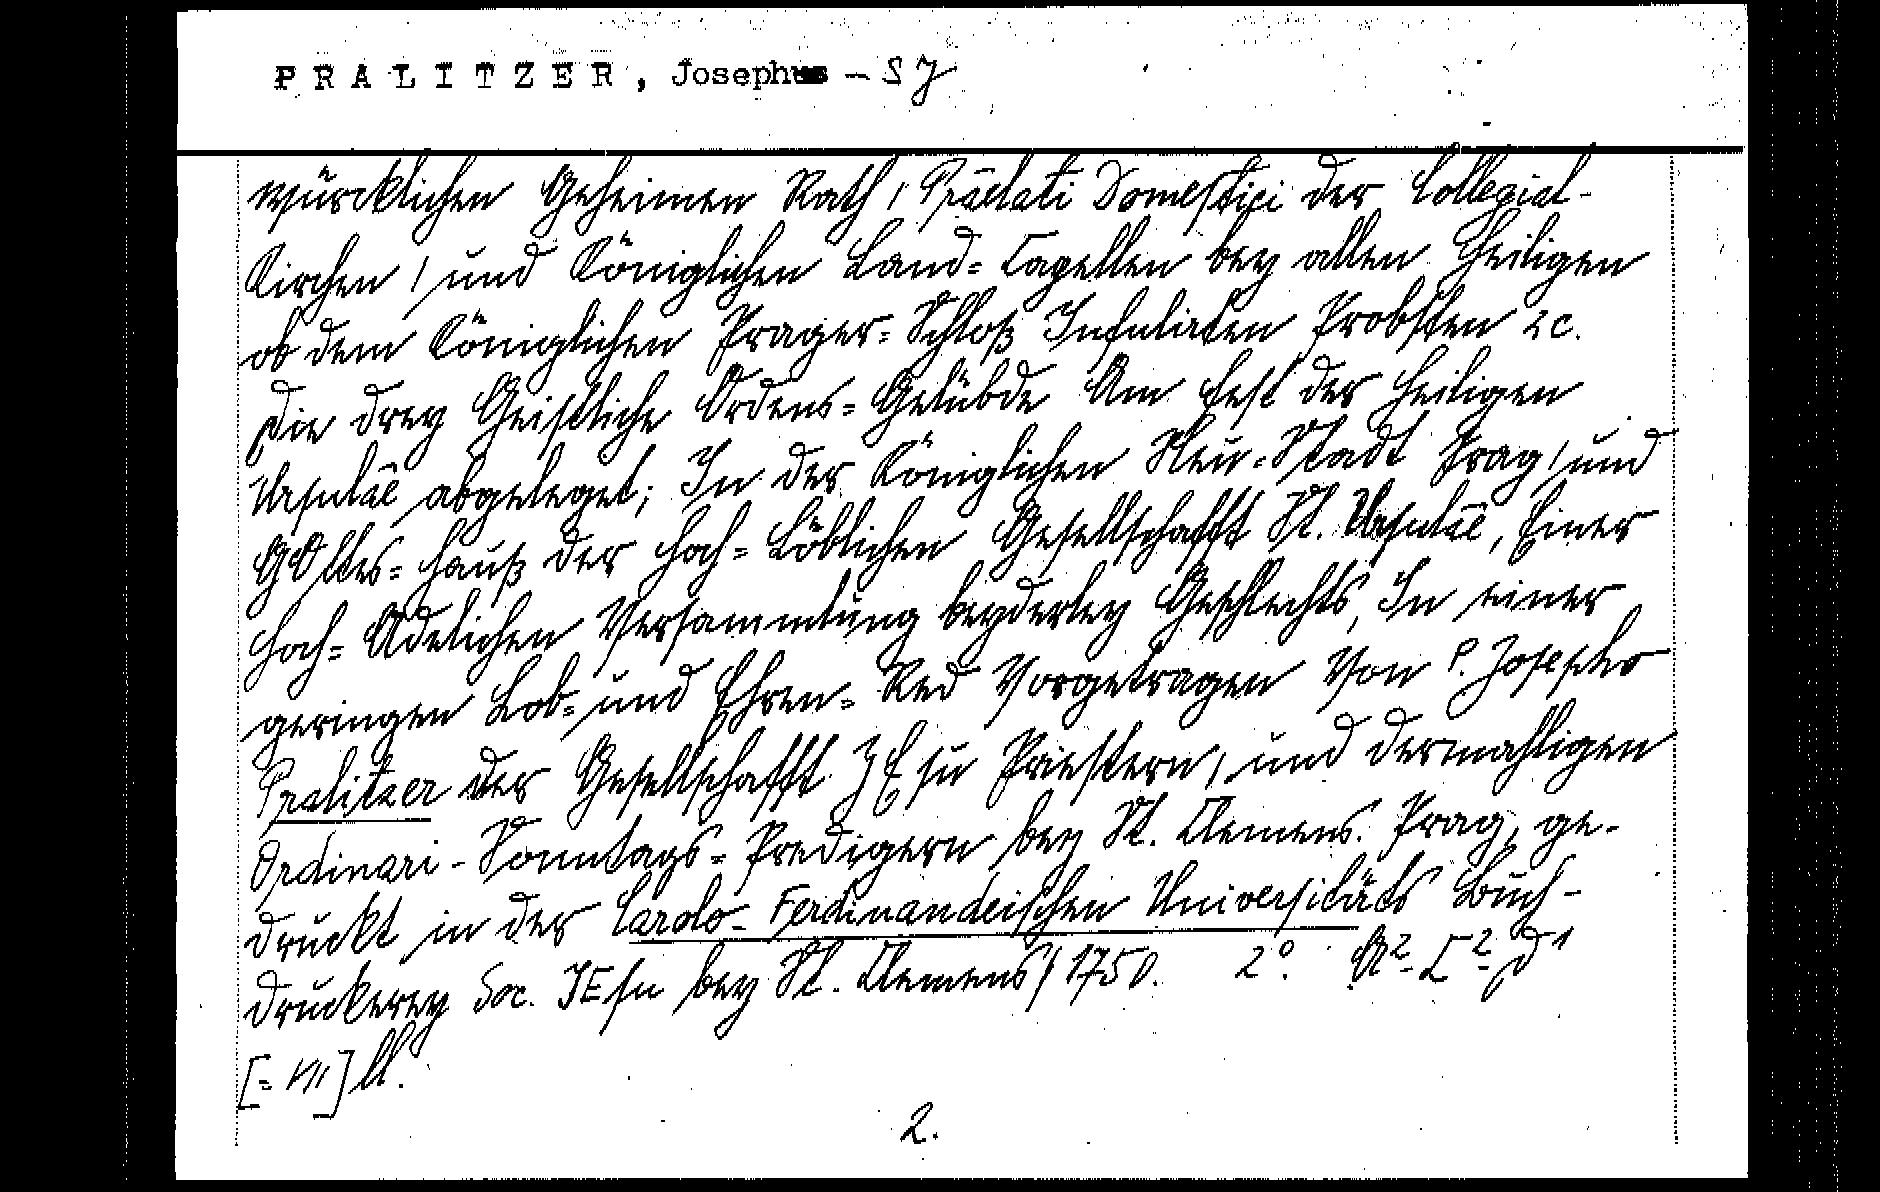 PRALITZER, Joseph - SJ
würcklichen Geheimen Rath / Praelati Domestici der Collegial-
Kirchen / und Königlichen Land= Capellen bey allen Heiligen
ob dem Königlichen Prager= Schloß Infulirten Probsten 2c.
Die drey Geistliche Ordens= Gelübde Am Fest der Heiligen
Ursulae abgeleget; In der Königlichen Neu=Stadt Prag / und
GOttes= Hauß der Hoch= Löblichen Gesellschafft St. Ursulae, Einer
Hoch= Adelichen Versammlung beyderley Geschlechts, In einer
geringen Lob= und Ehren= Red Vorgetragen Von P. Josepho
Pralitzer der Gesellschafft JEsu Priestern, und dermahligen
Ordinari- Sonntags= Predigern bey St. Clemens. Prag, ge-
druckt in der Carolo- Ferdinandeischen Universitäts Buch-
druckerey Soc. JEsu bey St. Clemens / 1750. 2°. A²-C²-D¹
[= VII] ll.
2.